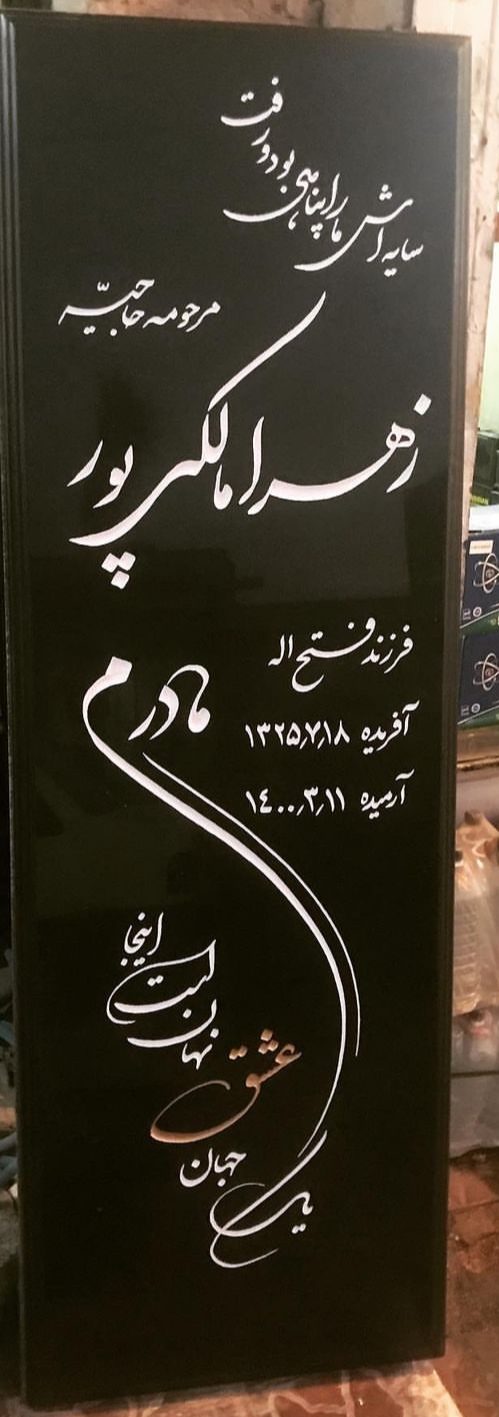 سایه اش ما را پناهی بود و رفت
مرحومه حاجیه
زهرا مالکی پور
فرزند فتح اله
آفریده ۱۳۲۵٫۷٫۱۸
آرمیده ۱۴۰۰٫۳٫۱۱
مادرم
یک جهان عشق نهان است اینجا